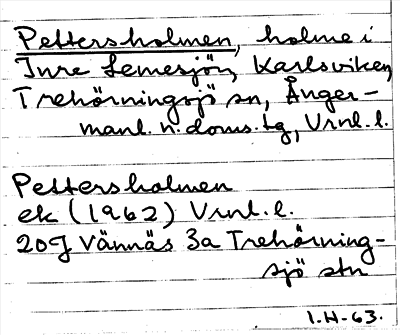 Pettersholmen, holme i
Inre Lemesjön, Karlsviken,
Trehörningsjö sn, Ånger-
manl. n. doms. tg, Vrnl. l.
Pettersholmen
ek (1962) Vrnl. l.
20J Vännäs 3a Trehörning-
sjö stn
1.H-63.